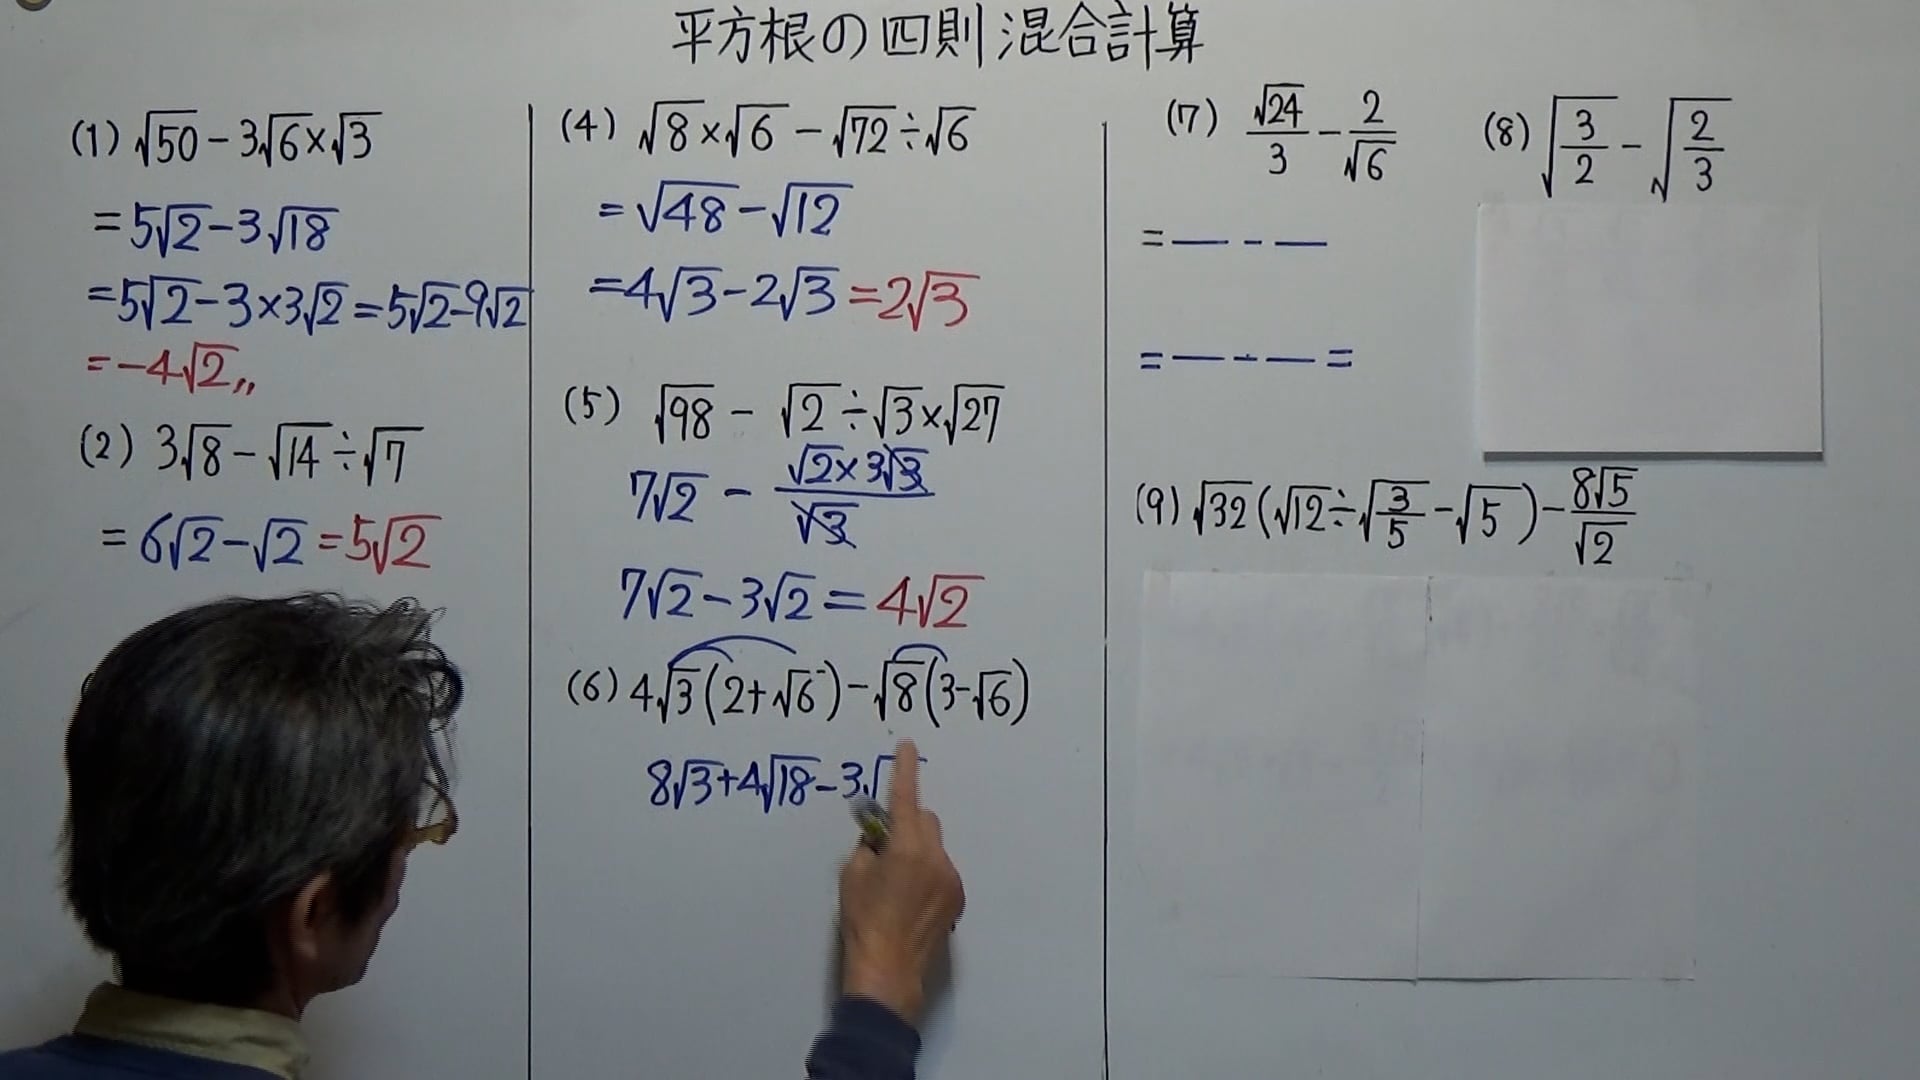 平方根の四則混合計算
(1) √50 - 3√6×√3
= 5√2 - 3√18
= 5√2 - 3×3√2 = 5√2 - 9√2
= -4√2〃
(2) 3√8 - √14 ÷ √7
= 6√2 - √2 = 5√2
(4) √8×√6 - √72÷√6
= √48 - √12
= 4√3 - 2√3 = 2√3
(5) √98 - √2÷√3×√27
7√2 - (√2×3√3)/√3
7√2 - 3√2 = 4√2
(6) 4√3(2+√6) - √8(3-√6)
8√3+4√18-3√
(7) √24/3 - 2/√6
= — - —
= — - — =
(8) √(3/2) - √(2/3)
(9) √32(√12÷√(3/5) - √5) - 8√5/√2